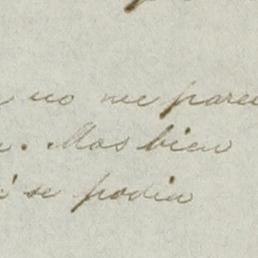 no me parec
. Mas bien
se podia